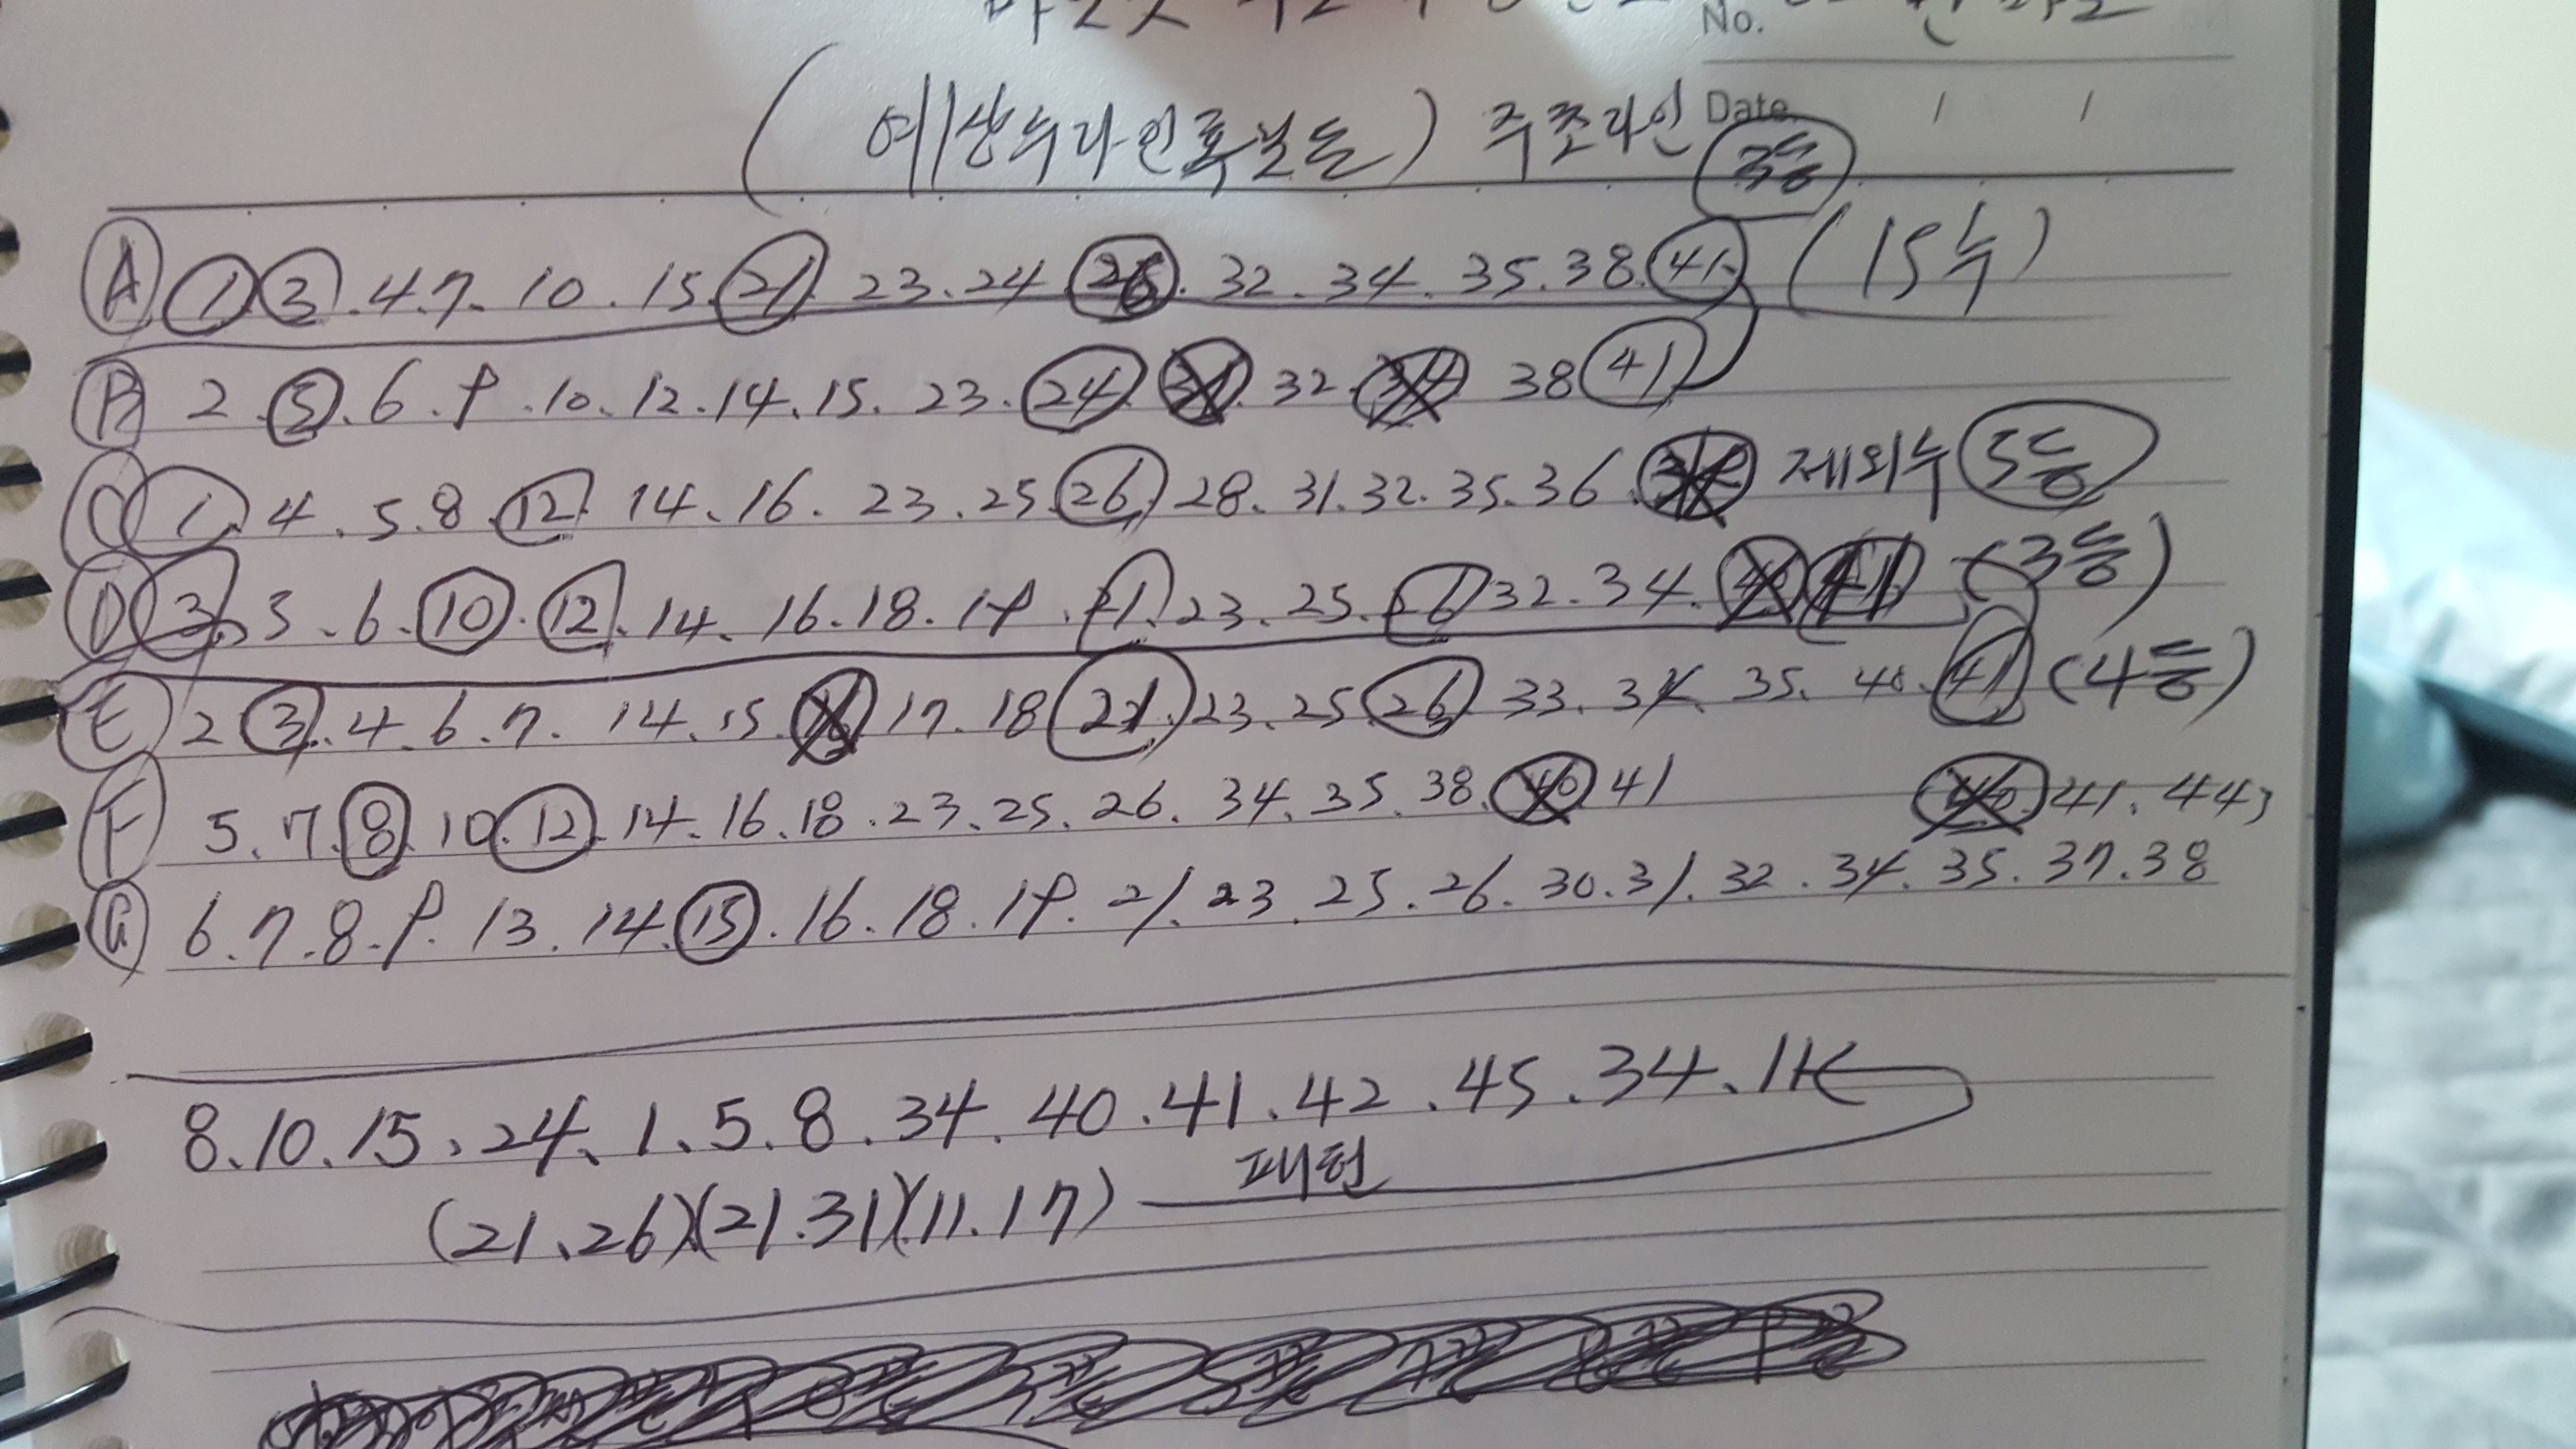 No.
(예상수라인후보들) 주조라인 Date
3등
A 1 3. 4. 7. 10. 15. 21. 23. 24 26. 32. 34. 35. 38. 41 (15수)
B 2. 5. 6. 9. 10. 12. 14. 15. 23. 24 32. 38 41
C 1. 4. 5. 8. 12. 14. 16. 23. 25. 26. 28. 31. 32. 35. 36. 제외수 5등
D 3. 5. 6. 10. 12. 14. 16. 18. 19. 21. 23. 25. 26 32. 34. 40 41 (3등)
E 2 3. 4. 6. 7. 14. 15. 16 17. 18 21. 23. 25. 26. 33. 34. 35. 40. 41 (4등)
F 5. 7. 8. 10. 12. 14. 16. 18. 23. 25. 26. 34. 35. 38. 40 41
40 41. 443
G 6. 7. 8. 9. 13. 14. 15. 16. 18. 19. 21. 23. 25. 26. 30. 31. 32. 34. 35. 37. 38
8. 10. 15. 24. 1. 5. 8. 34. 40. 41. 42. 45. 34. 11
(21. 26)(21. 31)(11. 17) 패턴